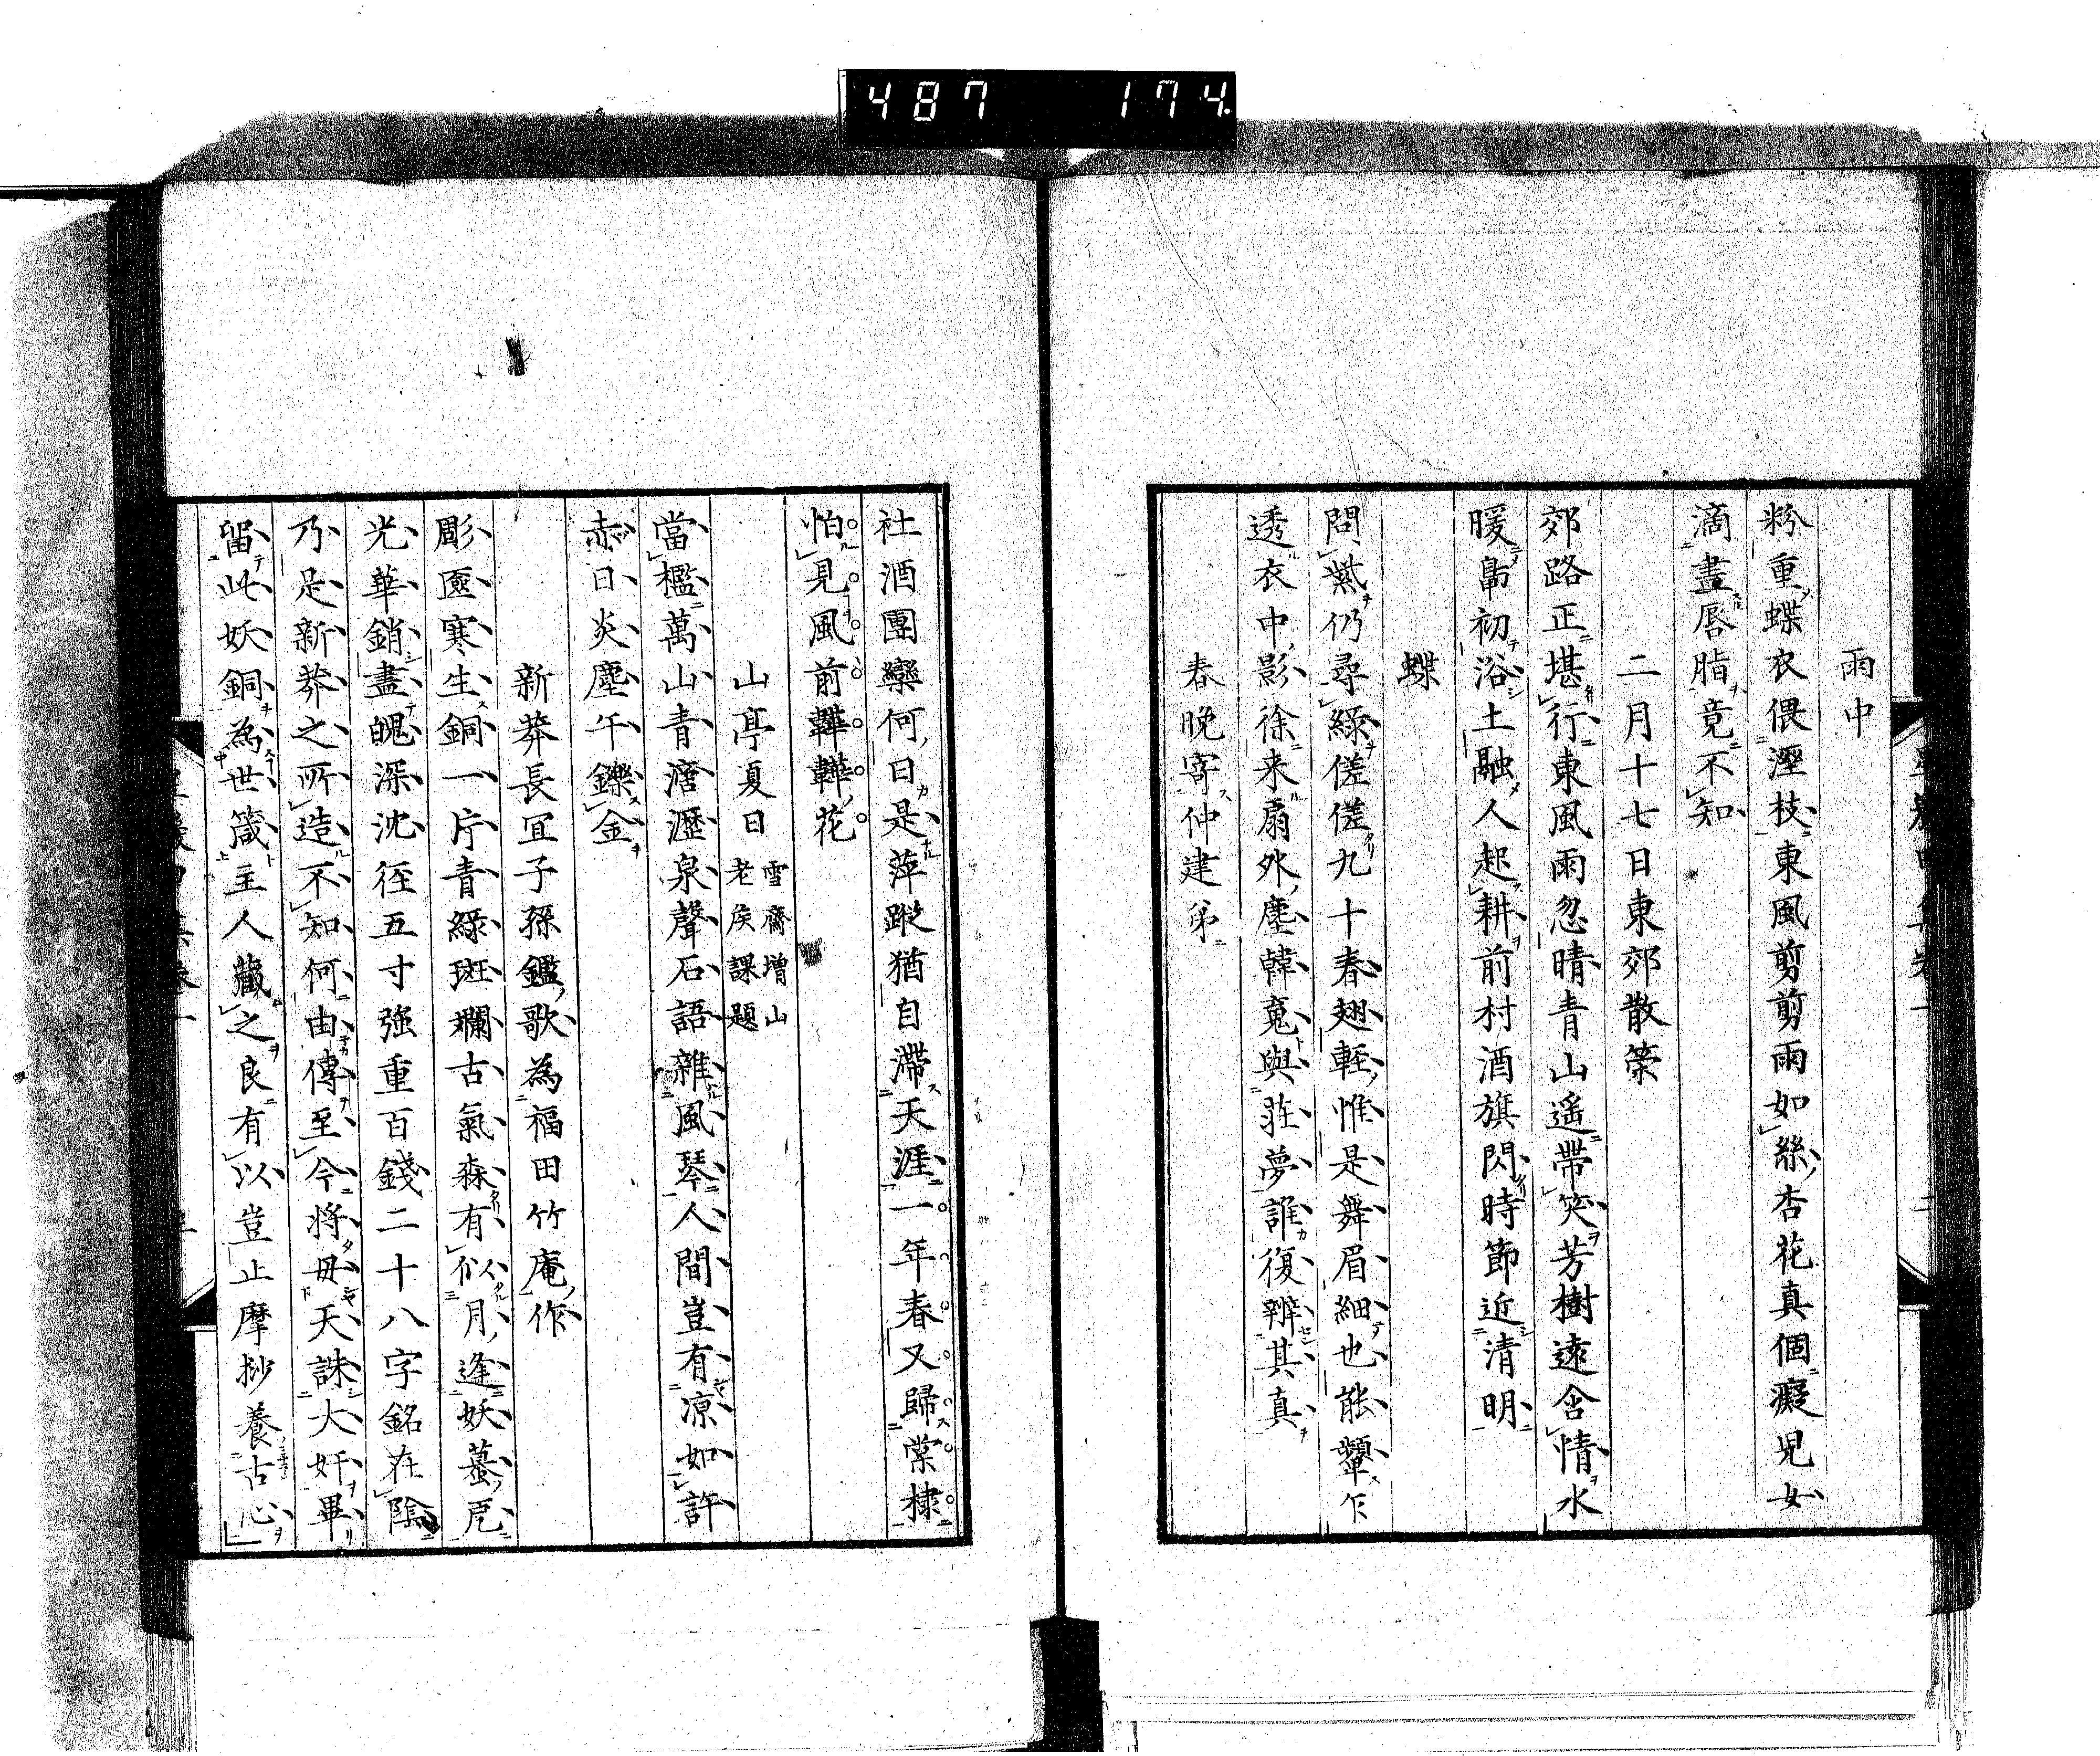 487 174
雨中
粉重蝶衣偎溼枝東風剪剪雨如絲杏花真個癡児女
滴盡唇脂竟不知
二月十七日東郊散策
郊路正堪行東風雨忽晴青山遥帶笑芳樹遠含情水
暖畠初浴土融人起耕前村酒旗閃時節近清明
蝶
問紫仍尋緑傞傞九十春翅軽惟是舞眉細也能顰乍
透衣中影徐来扇外塵韓寃與荘夢誰復辨其真
春晚寄仲建弟
社酒團欒何日是萍蹤猶自滯天涯一年春又歸棠棣
怕見風前韡韡花
山亭夏日 雪齋増山老矦課題
當檻萬山青滴瀝泉聲石語雜風琴人間豈有凉如許
赤日炎塵午鑠金
新莽長冝子孫鑑歌為福田竹庵作
彫匳寒生銅一片青緑斑斕古氣森有似月逢妖蟇厄
光華銷盡魄深沈徑五寸強重百錢二十八字銘在陰
乃是新莽之所造不知何由傳至今将毋天誅大奸畢
留此妖銅為世箴主人藏之良有以豈止摩挲養古心